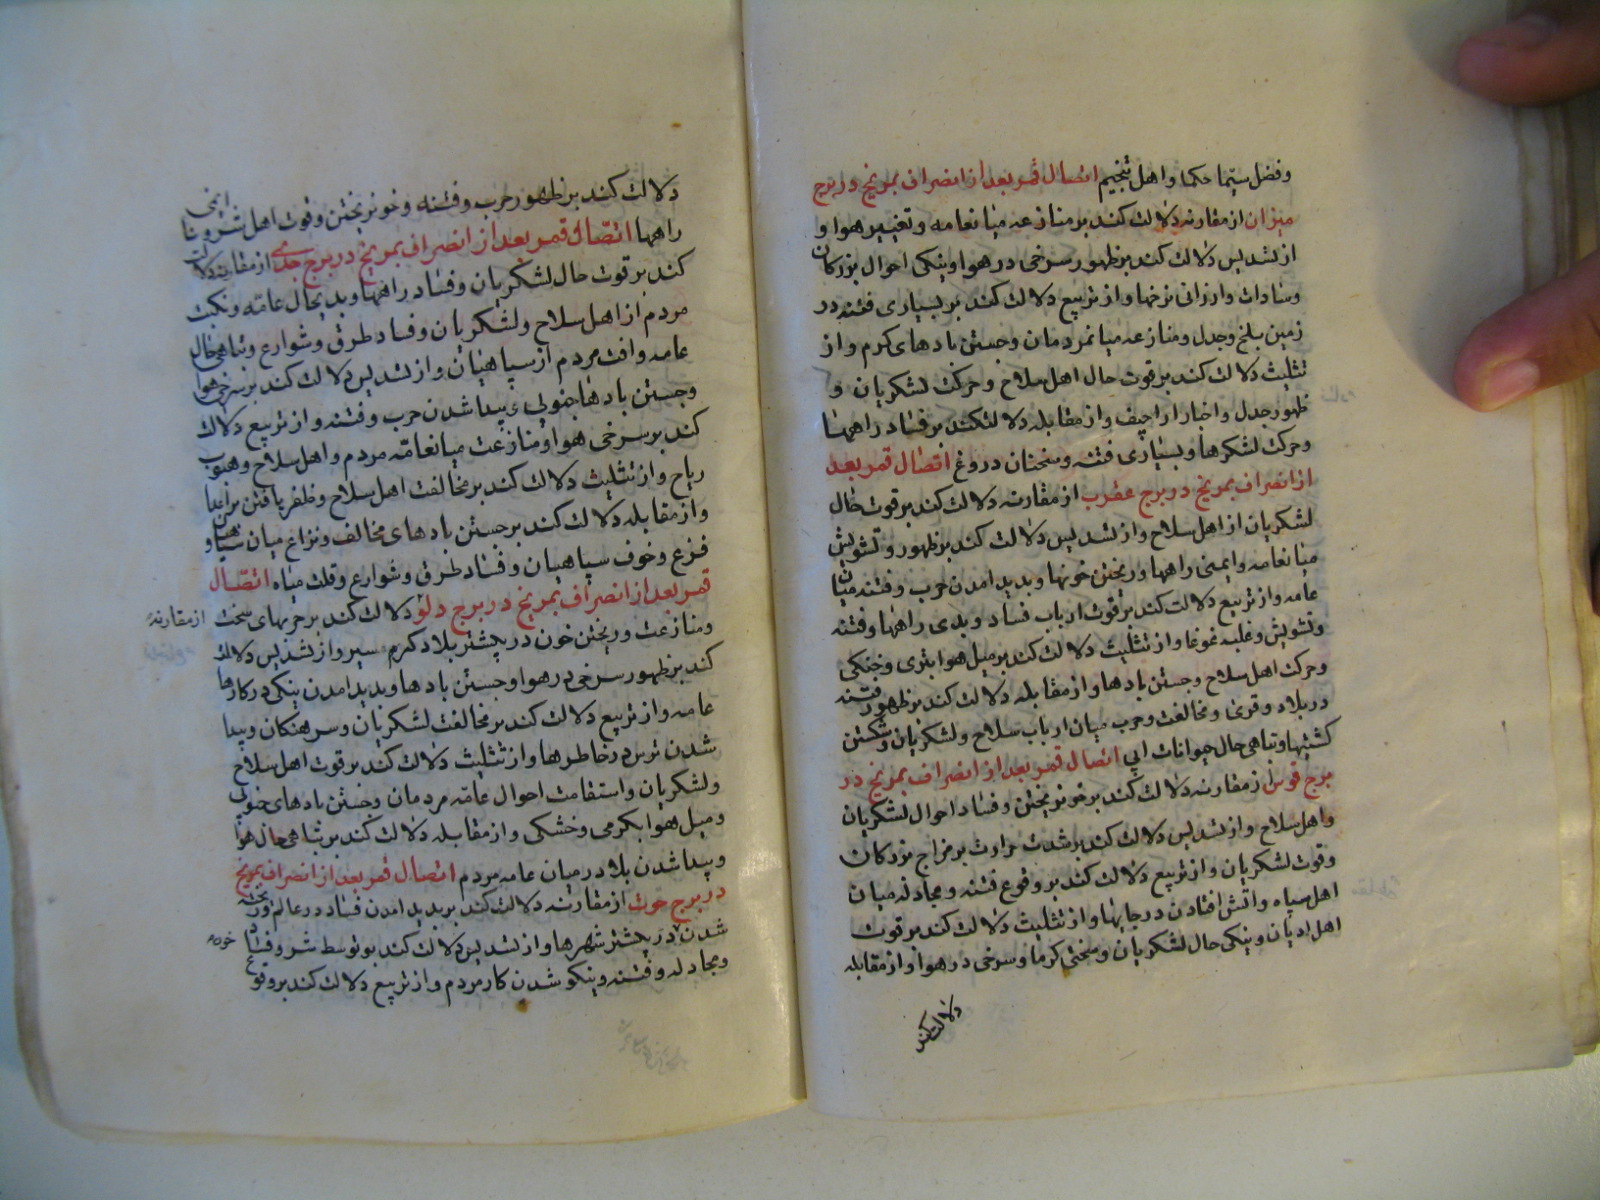 وفضل سیما حکما و اهل تنجیم اتصال قمر بعد از انصراف بمریخ در برج
میزان از مقارنه دلالت کند بر منازعه میا نعامه و تغییر هوا و
از تسدیس دلالت کند بر ظهور سرخی در هوا و نیکی احوال بزرکان
و سادات و ارزانی نرخها و از تربیع دلالت کند بر بسیاری فتنه در
زمین بلخ و جدل و منازعه میا نمردمان و جستن بادهای کرم و از
تثلیث دلالت کند بر قوت حال اهل سلاح و حرکت لشکریان و
ظهور جدل و اخبار اراجیف و از مقابله دلالتکند بر فساد راهها
و حرکت لشکرها و بسیاری فتنه و سخنان دروغ اتصال قمر بعد
از انصراف بمریخ در برج عقرب از مقارنه دلالت کند بر قوت حال
لشکریان از اهل سلاح و از تسدیس دلالت کند بر ظهور و تشویش
میا نعامه و ایمنی راهها و ریختن خونها و بدید امدن حرب و فتنه میان
عامه و از تربیع دلالت کند بر قوت ارباب فساد و بدی راهها و فتنه
و تشویش و غلبه غوغا و از تثلیث دلالت کند بر میل هوا بتری و خنکی
و حرکت اهل سلاح و جستن بادها و از مقابله دلالت کند بر ظهور فتنه
در بلاد و قری و مخالفت و حرب میان ارباب سلاح و لشکریان و شکستن
کشتیها و تباهی حال حیوانات ابی اتصال قمر بعد از انصراف بمریخ در
برج قوس از مقارنه دلالت کند بر خونریختن و فساد احوال لشکریان
و اهل سلاح و از تسدیس دلالت کند بر شدت حرارت بر مزاج بزرکان
و قوت لشکریان و از تربیع دلالت کند بر وقوع فتنه و مجادله میان
اهل سپاه و اتش افتادن در جایها و از تثلیث دلالت کند بر قوت
اهل ادیان و نیکی حال لشکریان و سختی کرما و سرخی در هوا و از مقابله
دلالت کند
دلالت کند بر ظهور حرب و فتنه و خونریختن و قوت اهل شر و نا ایمنی
راهها اتصال قمر بعد از انصراف بمریخ در برج جدی از مقارنه دلالت
کند بر قوت حال لشکریان و فساد راهها و بدیحال عامه و نکبت
مردم از اهل سلاح و لشکریان و فساد طرق و شوارع و تباهی حال
عامه و افت مردم از سپاهیان و از تسدیس دلالت کند بر سرخی هوا
و جستن بادها جنوبی و پیدا شدن حرب و فتنه و از تربیع دلالت
کند بر سرخی هوا و منازعت میا نعامه مردم و اهل سلاح و هبوب
ریاح و از تثلیث دلالت کند بر مخالفت اهل سلاح و ظفر یافتن بر اعدا
و از مقابله دلالت کند بر جستن بادهای مخالف و نزاع میان سپاهیان و
فزع و خوف سپاهیان و فساد طرق و شوارع و قلت میاه اتصال
قمر بعد از انصراف بمریخ در برج دلو دلالت کند بر حربهای سخت از مقارنه
و منازعت و ریختن خون در بیشتر بلاد کرم سیر و از تسدیس دلالت
کند بر ظهور سرخی در هوا و جستن بادها و بدید امدن نیکی در کارها
عامه و از تربیع دلالت کند بر مخالفت لشکریان و سرهنکان و پیدا
شدن ترس در خاطرها و از تثلیث دلالت کند بر قوت اهل سلاح
و لشکریان و استقامت احوال عامه مردمان و جستن بادهای جنوبی
و میل هوا بکرمی و خشکی و از مقابله دلالت کند بر تباهی حال هوا
و پیدا شدن بلا در میان عامه مردم اتصال قمر بعد از انصراف بمریخ
در برج حوت از مقارنه دلالت کند بر بدید امدن فساد در عالم و ریخته
شدن در بیشتر شهرها و از تسدیس دلالت کند بر توسط شر و فساد خون
و مجادله و فتنه و نیکو شدن کار مردم و از تربیع دلالت کند بر وقوع